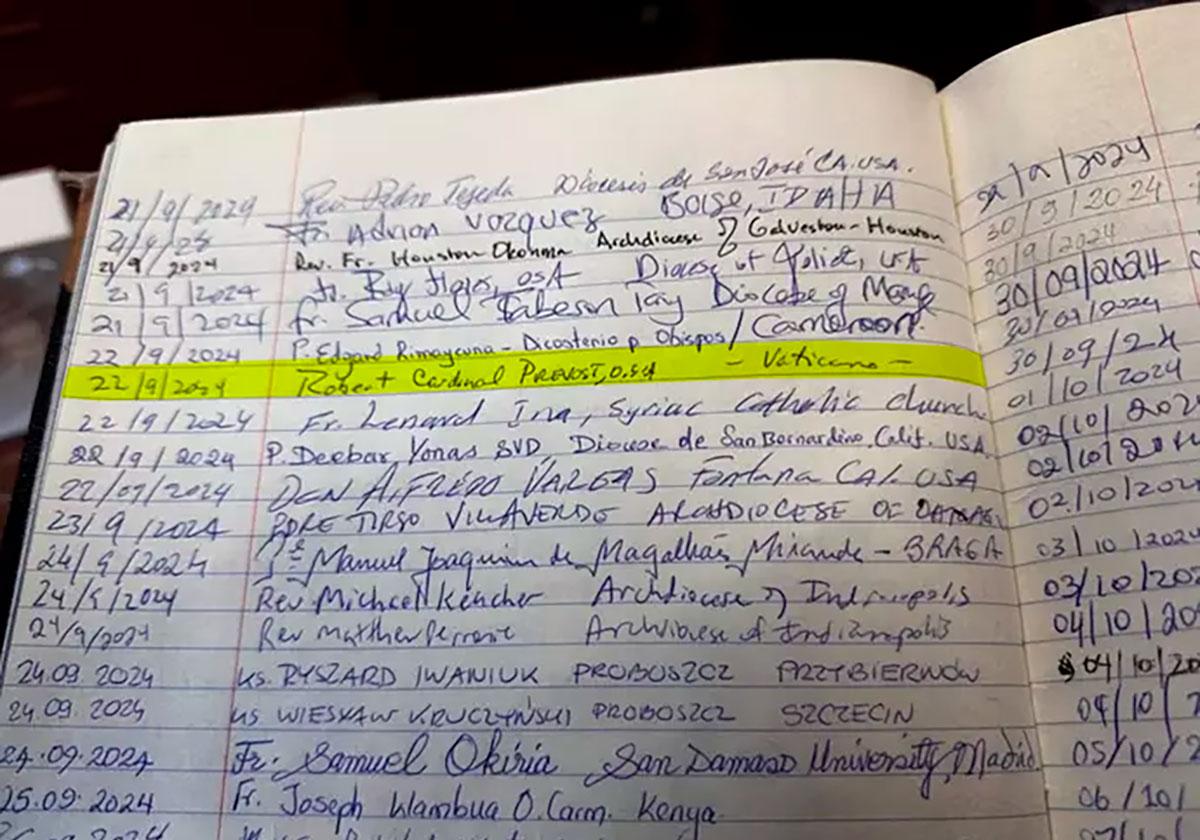 21/9/2024 Rev. Pedro Tejeda Diocesis de San José CA. USA.
21/9/24 Fr. Adrian Vazquez BOISE, IDAHA
21/9/2024 Rev. Fr. Houston Okonma Archdiocese of Galveston-Houston
21/9/2024 Fr. OSA Diocese of Joliet, USA
21/9/2024 fr. Samuel Diocese of
22/9/2024 P. Edgard Rimaycuna - Dicasterio p Obispos / Cameroon.
22/9/2024 Robert Cardinal PREVOST, O.S.A - Vaticano -
22/9/2024 Fr. Lenard Ina, Syriac Catholic Church
22/9/2024 P. Deebar Yonas SVD, Diocese de San Bernardino, Calif. USA.
22/09/2024 DON ALFREDO VARGAS Fontana CAL. USA
23/9/2024 PDRE TIRSO VILLAVERDE ARCHDIOCESE OF
24/9/2024 Pe Manuel Joaquim de Magalhães Miranda - BRAGA
24/9/2024 Rev. Michael Keucher Archdiocese of Indianapolis
24/9/2024 Rev Matthew Perronie Archdiocese of Indianapolis
24.09.2024 ks. RYSZARD IWANIUK PROBOSZCZ PRZYBIERNÓW
24.09.2024 ks WIESŁAW KRUCZYŃSKI PROBOSZCZ SZCZECIN
24.09.2024 Fr. Samuel Okiria San Damaso University, Madrid.
25.09.2024 Fr. Joseph Wambua O.Carm. Kenya
30/9/2024
30/9/2024
30/09/2024
30/09/2024
30/09/24
01/10/2024
02/10/202
02/10/20
02.10/202
03/10/202
03/10/202
04/10/20
04/10/20
04/10/
05/10/2
06/10/